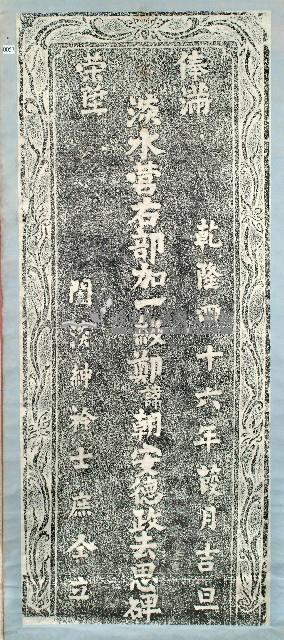 俸滿
榮陞
乾隆四十六年葭月吉旦
淡水營右部加一級鄭諱朝安德政去思碑
闔淡紳衿士庶仝立
0057